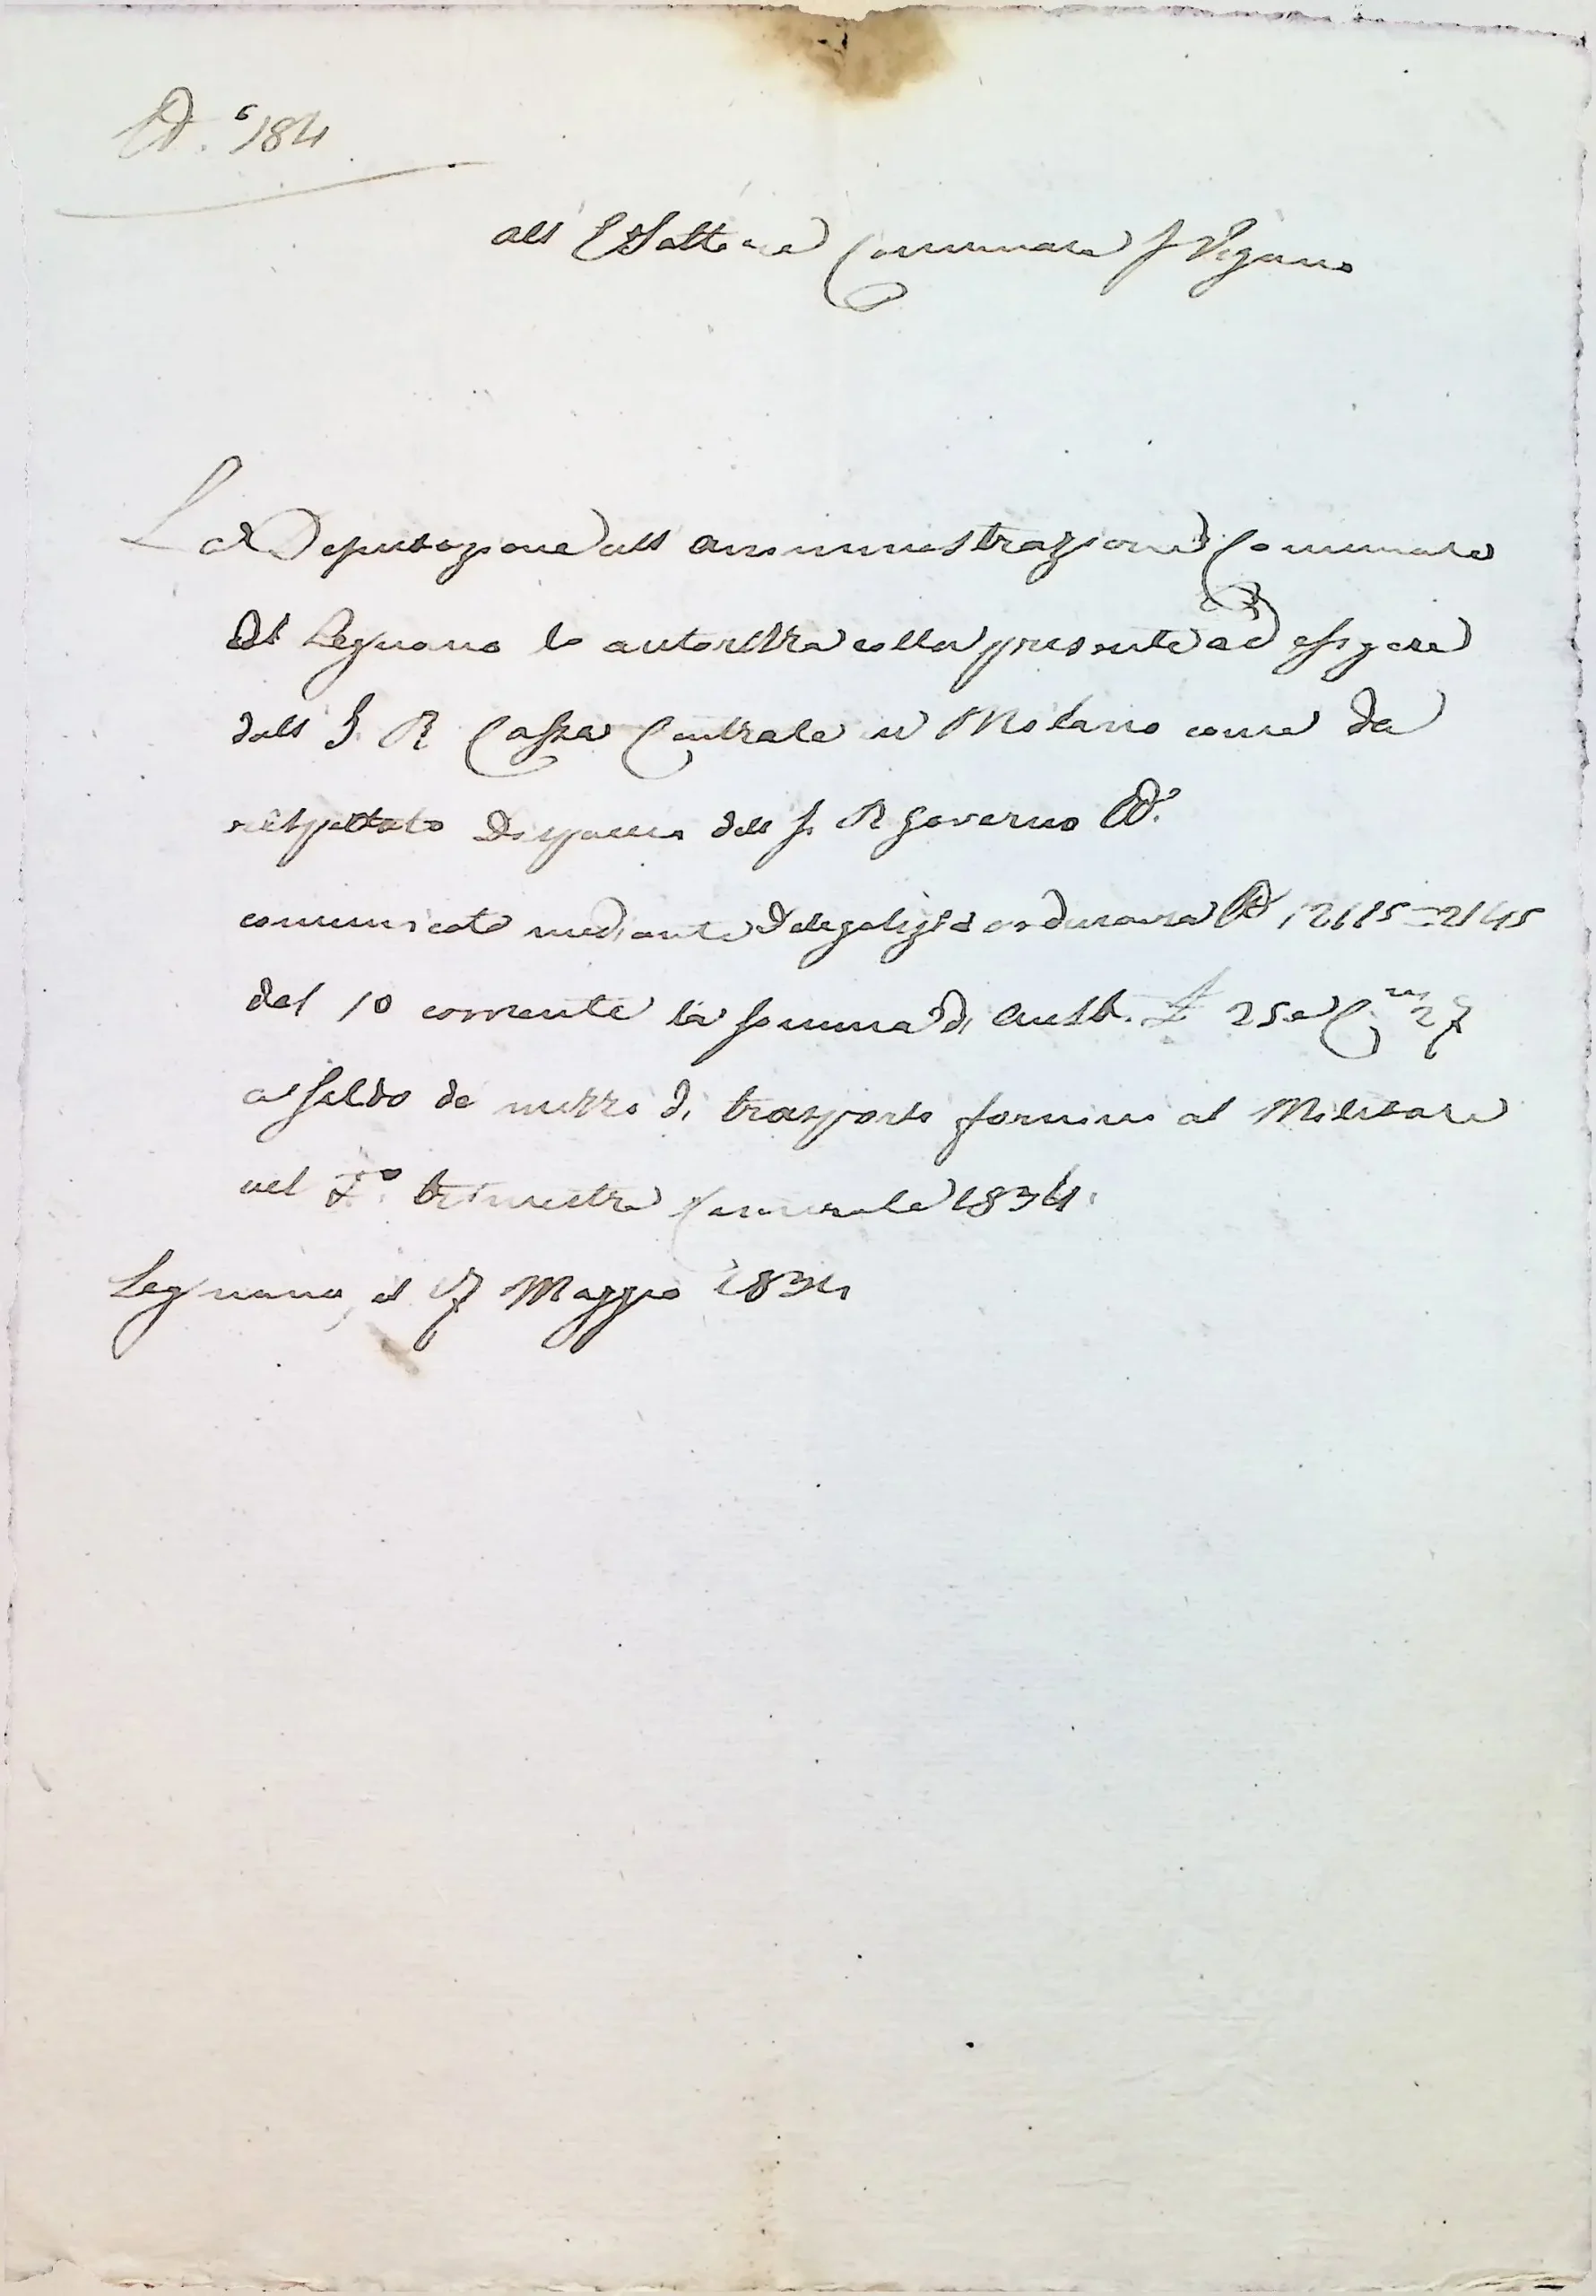 N.° 184
all Esattore Comunale S. Vigano
La Deputazione all amministrazione Comunale
di Legnano lo autorizza colla presente ad esigere
dall I. R. Cassa Centrale in Milano come da
rispettato Dispaccio dell I. R. Governo N.°
comunicato mediante Delegatizia ordinanza N.° 12685-2145
del 10 corrente la somma di Aust. £ 25 e C.mi 27
a saldo de mezzi di trasporto forniti al Militare
nel trimestre Camerale 1834.
Legnano, il 17 Maggio 1834